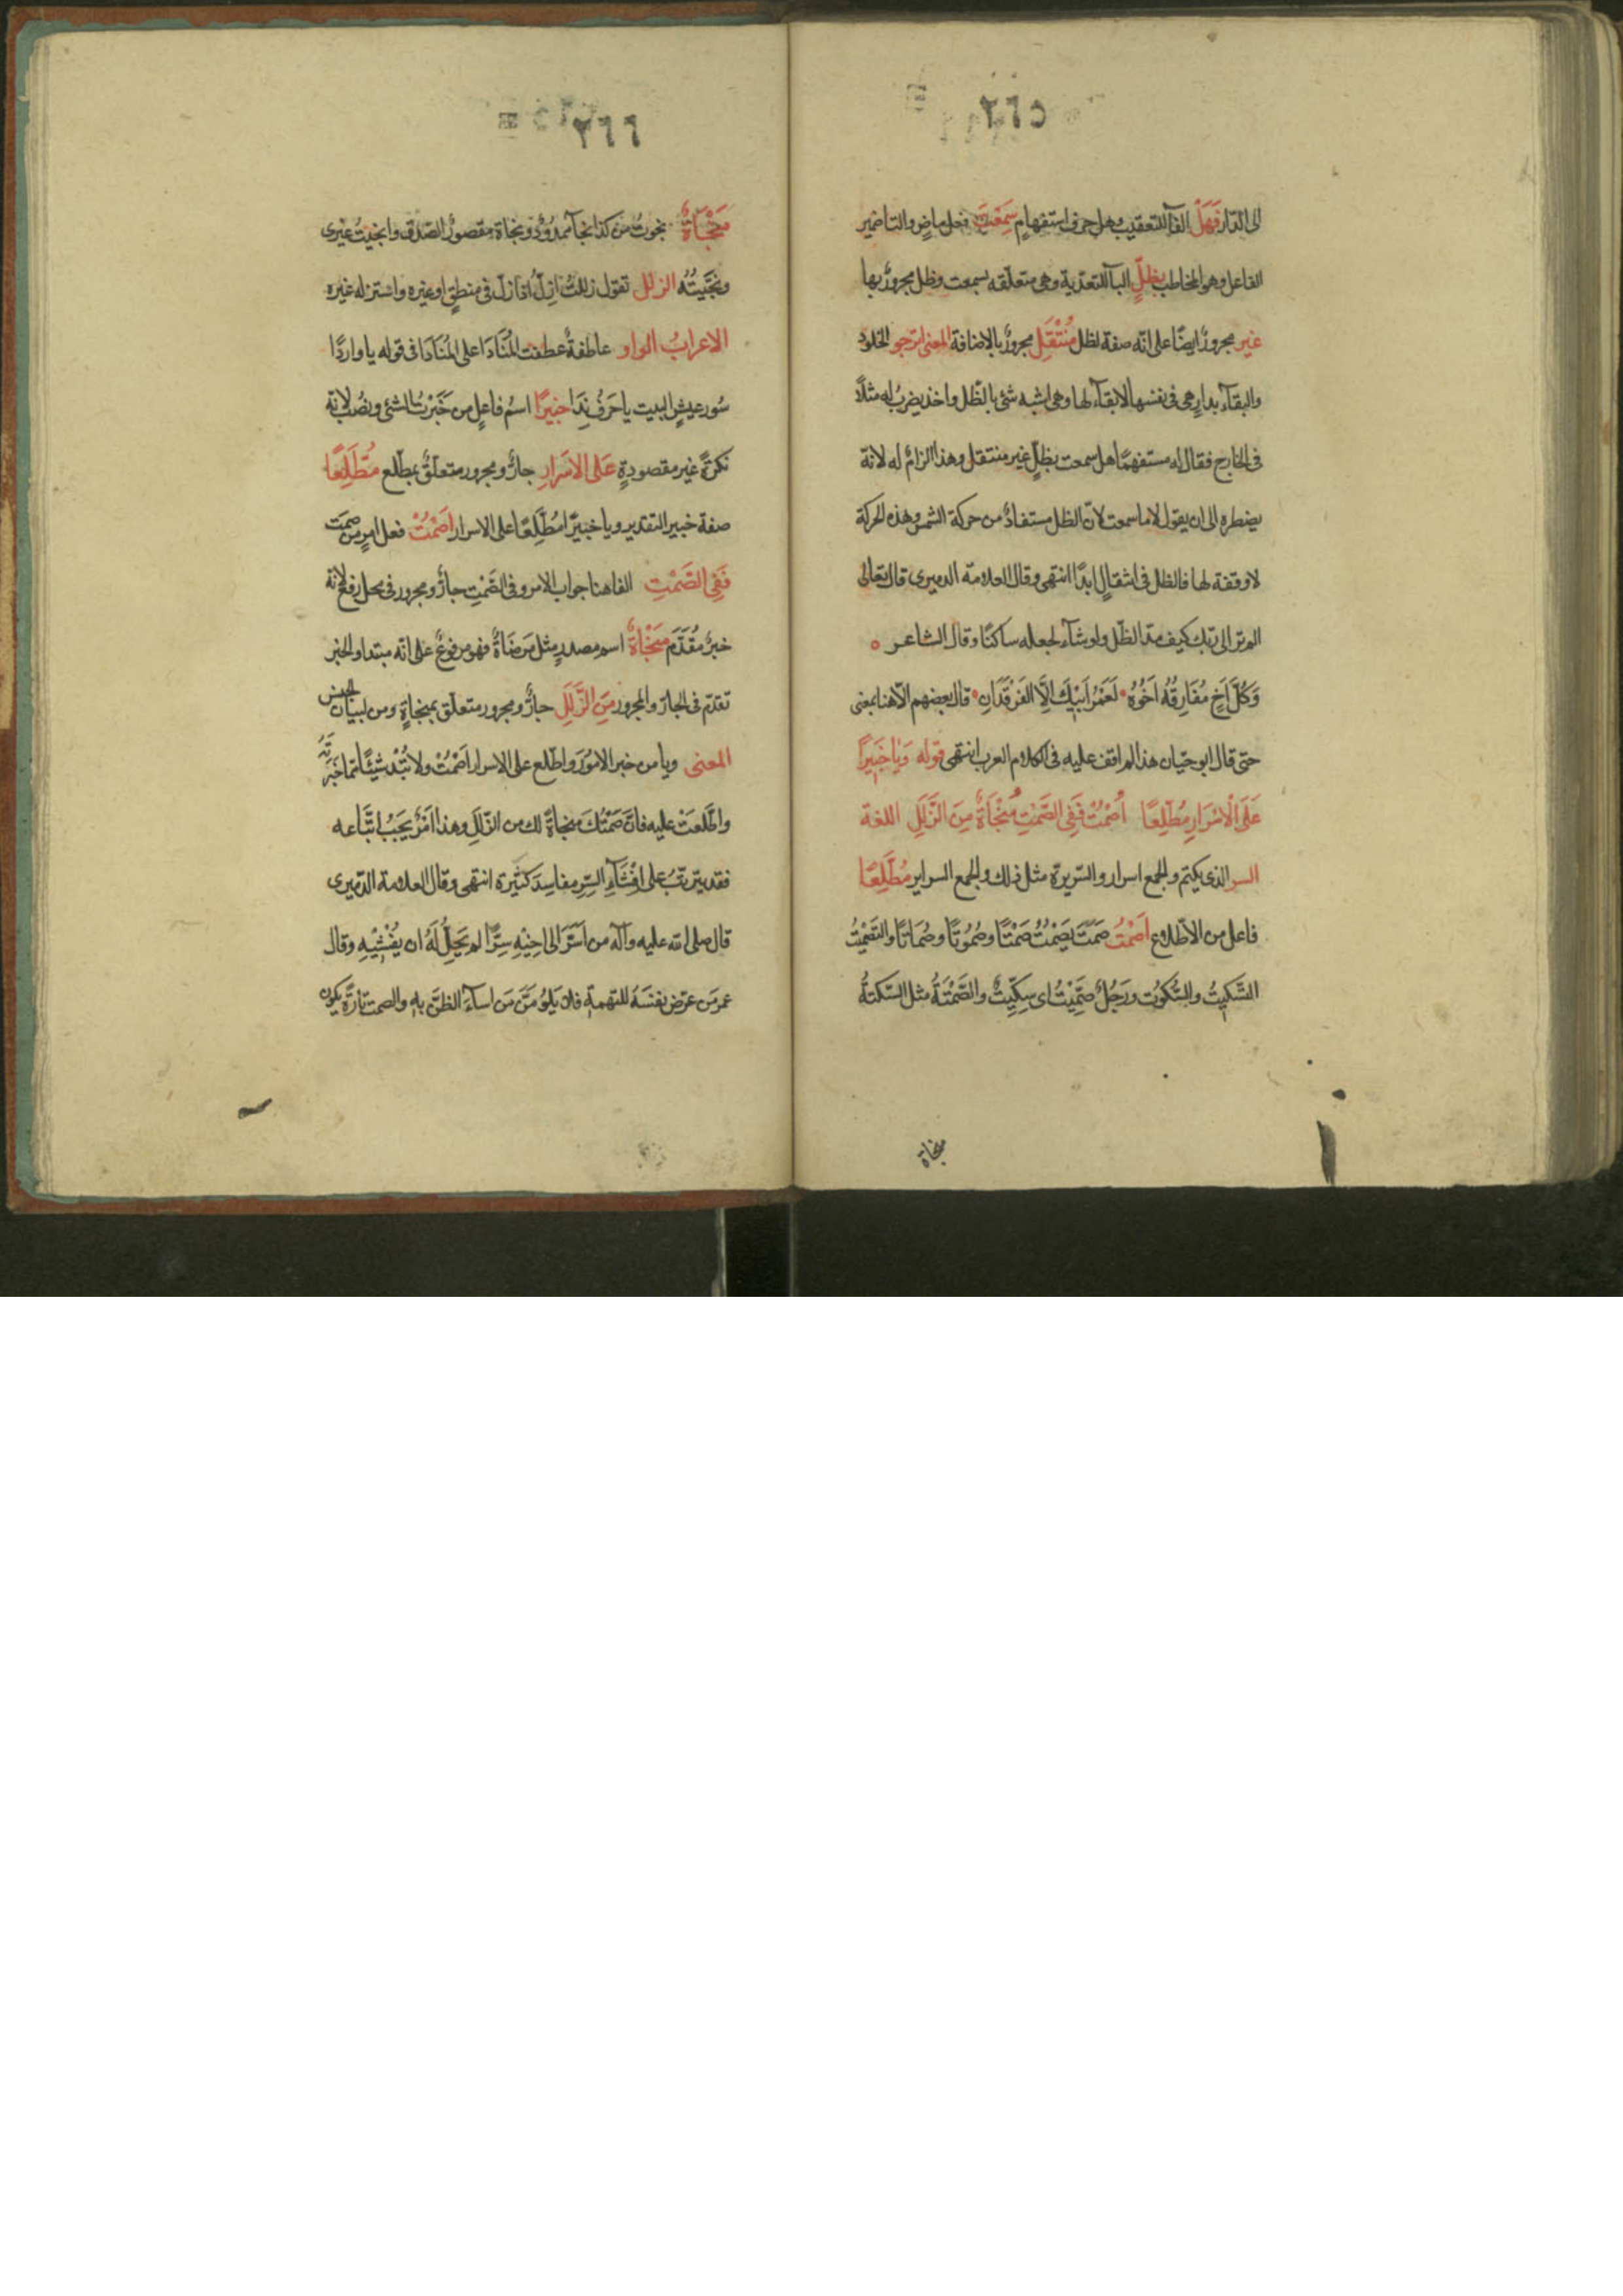 ٢٦٥
الى الدّار فَهَلْ الفآ للتعقيب وهل حرف استفهامٍ سَمِعْتَ فعل ماضٍ والتا ضمير
الفاعل وهو المخاطب بِظِلٍّ البآ للتعدية وهى متعلّقه بسمعت وظل مجرورٌ بها
غير مجرورٌ ايضًا على انّه صفة لظل مُنْتَقِلِ مجرورٌ بالاضافة المعنى اترجو الخلود
والبقآء بدارٍ هى فى نفسها لا بقآء لها وهى اشبه شئ بالظّل واخذ يضربُ له مثلاً
فى الخارج فقال له مستفهمًا هل سمعت بظلٍّ غير منتقل وهذا الزامٌ له لانّه
يضطره الى ان يقول لا ما سمعت لانّ الظل مستفادٌ من حركة الشمس وهذه الحركة
لا وقفة لها فالظل فى انتقالٍ ابدًا انتهى وقال العلامة الدميرى قال تعالى
الم تر الى ربّك كيف مدّ الظّل ولو شآء لجعله ساكنًا وقال الشاعر ه
وَكُلُّ اَخٍ مُفَارِقُهُ اَخُوْهُ • لَعَمْرُ اَبِيْكَ اِلَّا الفَرْقَدَانِ • قال بعضهم الّا هنا بمعنى
حتى قال ابو حيّان هذا لم اقف عليه فى كلام العرب انتهى قوله وَيَا خَبِيْرًا
عَلَى الْاَسْرَارِ مُطَّلِعًا اُصْمُتْ فَفِى الصَّمْتِ مَنْجَاةٌ مِنَ الزَّلَلِ اللغة
السر الذى يكتم والجمع اسرار والسّريرة مثل ذلك والجمع السراير مُطَّلِعًا
فاعل من الاطّلاع اُصْمُتْ صَمَتَ يَصْمُتُ صَمْتًا وصُمُوتًا وصُمَاتًا والتَصْمِيْتُ
السَّكِيتُ والسُّكُوت ورَجُلٌ صِمِّيْتٌ اى سِكِّيتٌ والصَّمْتَةُ مثل السّكتةُ
منجاة
٢٦٦
مَنْجَاةٌ نجوتُ من كذا نجآ ممدُوْدٌ ونجاة مقصورٌ الصّدق وانجيتُ غيرى
ونَجَّيتُهُ الزلل تقول زللتُ ازلّ اى ازلّ فى منطقٍ او غيره واستزله غيره
الاعرابُ الواو عاطفةٌ عطفت المُنَادَا على المُنَادَا فى قوله يا واردًا
سُور عيشٍ البيت يا حَرفُ نِدَا خبيرًا اسمُ فاعلٍ من خَبَرْتُ الشئ ونصُب لانّه
نكرةٌ غير مقصودةٍ عَلى الاسَرارِ جارٌّ ومجرور متعلّقٌ بمطّلع مُطَّلِعًا
صفة خبير التقدير ويا خبيرًا مُطّلعًا على الاسرار اُصْمُتْ فعل امرٍ من صمت
فَفِى الصَّمْتِ الفا هنا جواب الامر وفى الصَّمْتِ جارٌّ ومجرور فى محل رفعٍ لانّه
خبرٌ مُقَدَّم مَنْجَاةٌ اسم مصدرٍ مثل مَرضَاةٌ فهو مرفوعٌ على انّه مبتدا والخبر
تقدّم فى الجارّ والمجرور مِنَ الزَّلَلِ جارٌّ ومجرور متعلّق بمنجاةٍ ومن لبيان الجنس
المعنى ويا من خبر الامُوْرَ واطّلع على الاسرار اُصْمُتْ ولا تُبْد شيئًا ممّا خَبَرْتَهُ
واطَّلَعتَ عليه فانَّ صَمْتَكَ منجاةٌ لك من الزّللِ وهذا اَمْرٌ يَجَبُ اتّباعه
فقد يترتّبُ على اِفْشَآءِ السِّرِ مفاسِدَ كَثيْرة انتهى وقال العلامة الدّميرى
قال صلى الله عليه وآله من اَسَّرَ الى اخِيْهِ سِرًّا لم يَحِلُّ لَهُ ان يُفْشِيْهِ وقال
عمر مَن عرّض نفسَهُ للتهمة فلا يَلوُمَنَّ مَن اسآءَ الظنَّ بهِ والصمت تارةً يكون